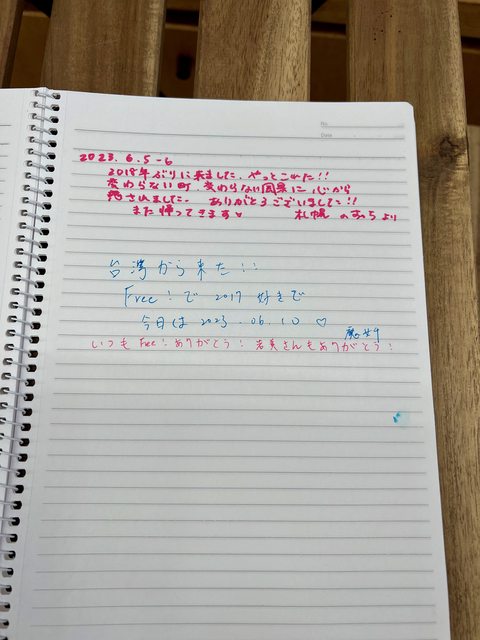 No.
Date
2023.6.5-6
2018年ぶりに来ました. やっとこれた!!
変わらない町、変わらない風景に心から
癒されました. ありがとうございました!!
また帰ってきます♡ 札幌 のすっちより
台湾から来た!!
Free!で 2017 好きで
今日は 2023.06.10 ♡
いつも Free!ありがとう! 店員さんもありがとう!